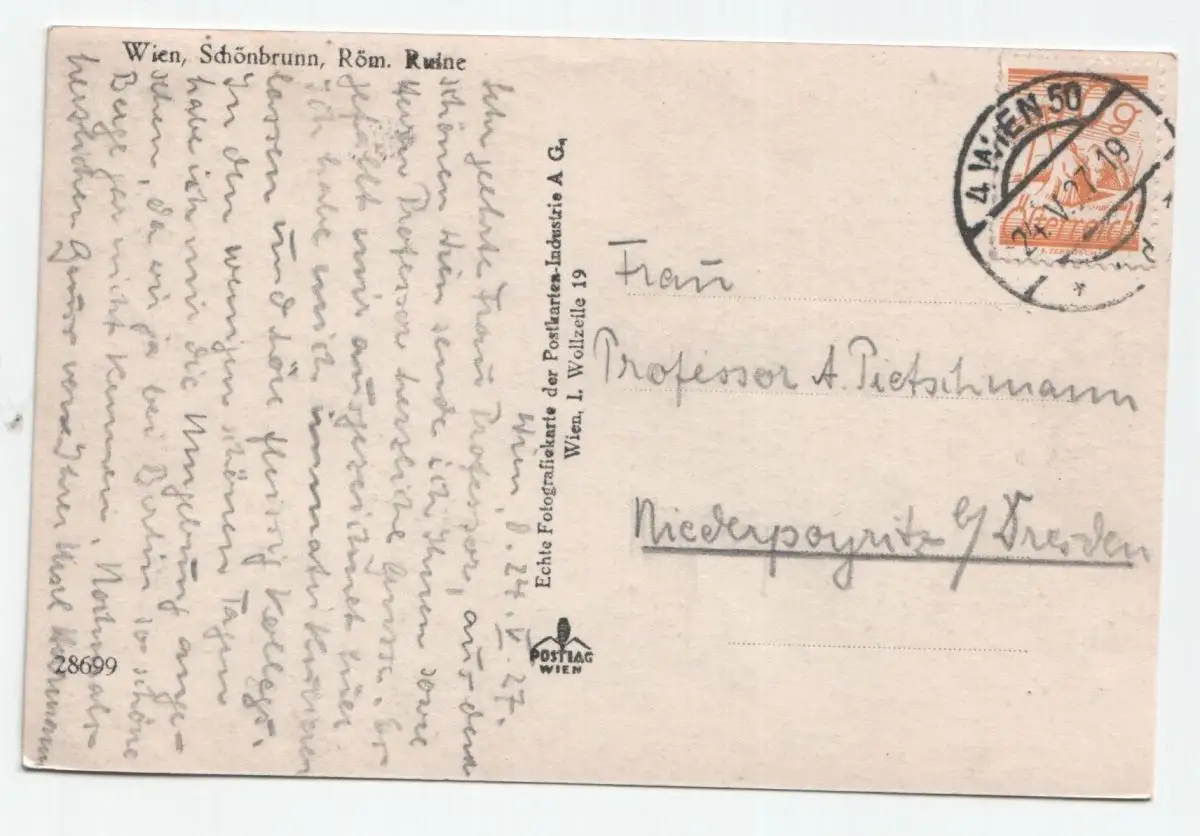 Wien, Schönbrunn, Röm. Ruine
Wien, d. 24. V. 27.
Sehr geehrte Frau Professor, aus dem
schönen Wien sende ich Ihnen sowie
Herrn Professor herzliche Grüsse. Es
gefällt mir ausgezeichnet hier
ich habe mich immatrikulieren
lassen und höre fleissig Kollegs.
In den wenigen schönen Tagen
habe ich mir die Umgebung ange-
sehen, da wir ja bei Berlin so schöne
Berge gar nicht kennen. Nochmals
herzlichen Gruss von Ihrer
28699
Echte Fotografiekarte der Postkarten-Industrie A G.
Wien, I. Wollzeile 19
POSTIAG
WIEN
4 WIEN 50
24. V. 27. 19
g
Österreich
Frau
Professor A. Pietschmann
Niederpoyritz b/ Dresden